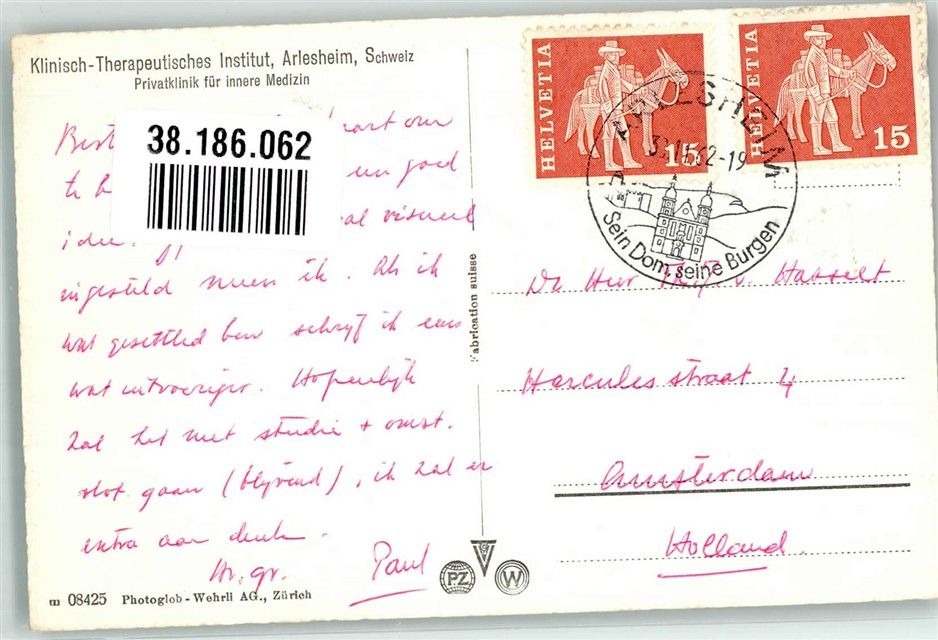 Klinisch-Therapeutisches Institut, Arlesheim, Schweiz
Privatklinik für innere Medizin
38.186.062
Best kaart om
te een goed
idee. al visueel
ingesteld ik. Als ik
wat gesettled ben schrijf ik eens
wat uitvoeriger. Hopenlijk
zal het met studie + omst.
vlot gaan (blijvend), ik zal er
extra aan denken.
Hr. gr. Paul
HELVETIA
15
HELVETIA
15
ARLESHEIM
62-19
Sein Dom, seine Burgen
Fabrication suisse
De Heer v. Hasselt
Hercules straat 4
Amsterdam
Holland.
PZ
W
m 08425 Photoglob-Wehrli AG., Zürich